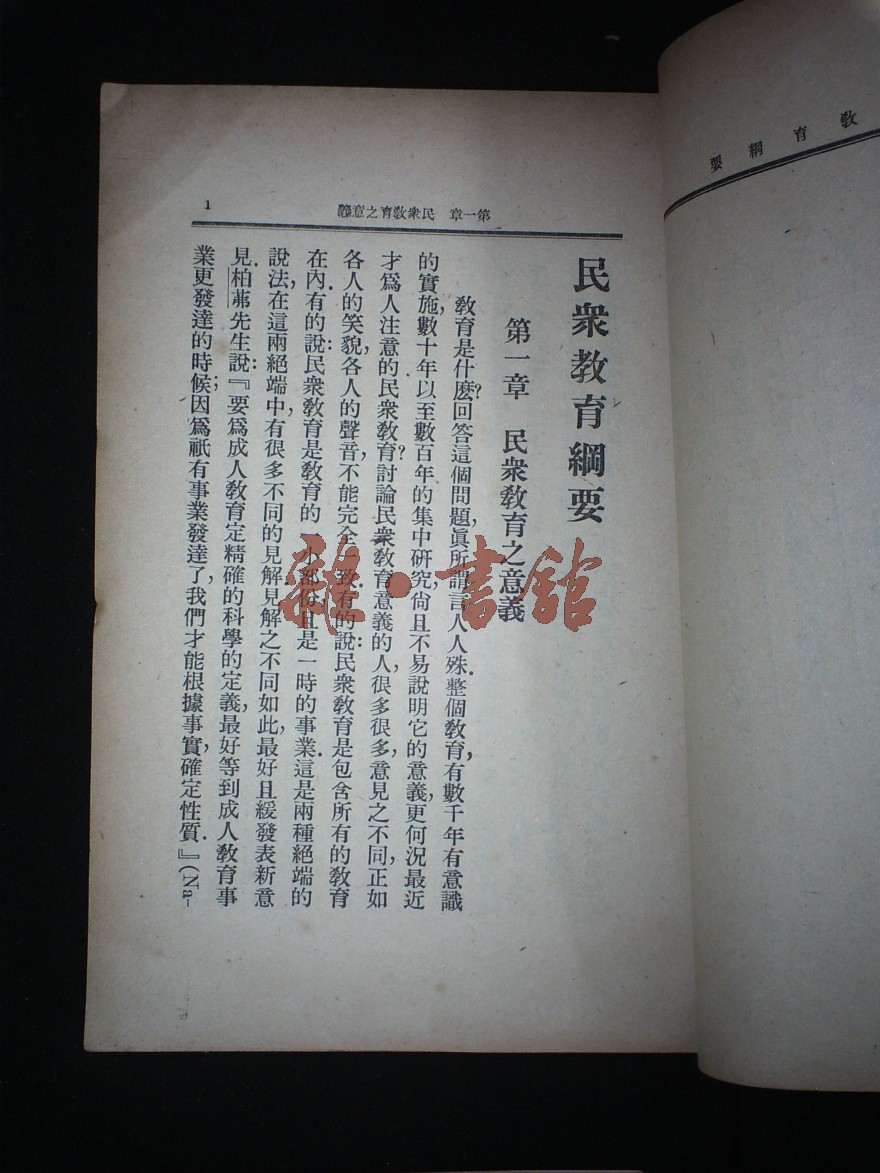 教育綱要
1
第一章　民衆教育之意義
民衆教育綱要
第一章　民衆教育之意義
教育是什麽?回答這個問題,眞所謂言人人殊.整個教育,有數千年有意識
的實施,數十年以至數百年的集中研究,尙且不易說明它的意義,更何況最近
才爲人注意的民衆教育?討論民衆教育意義的人,很多很多,意見之不同,正如
各人的笑貌,各人的聲音,不能完全一致.有的說:民衆教育是包含所有的教育
在內.有的說:民衆教育是教育的一小部份,且是一時的事業.這是兩種絕端的
說法,在這兩絕端中,有很多不同的見解.見解之不同如此,最好且緩發表新意
見.柏茀先生說:『要爲成人教育定精確的科學的定義,最好等到成人教育事
業更發達的時候;因爲祇有事業發達了,我們才能根據事實,確定性質.』(Na-
雜·書館